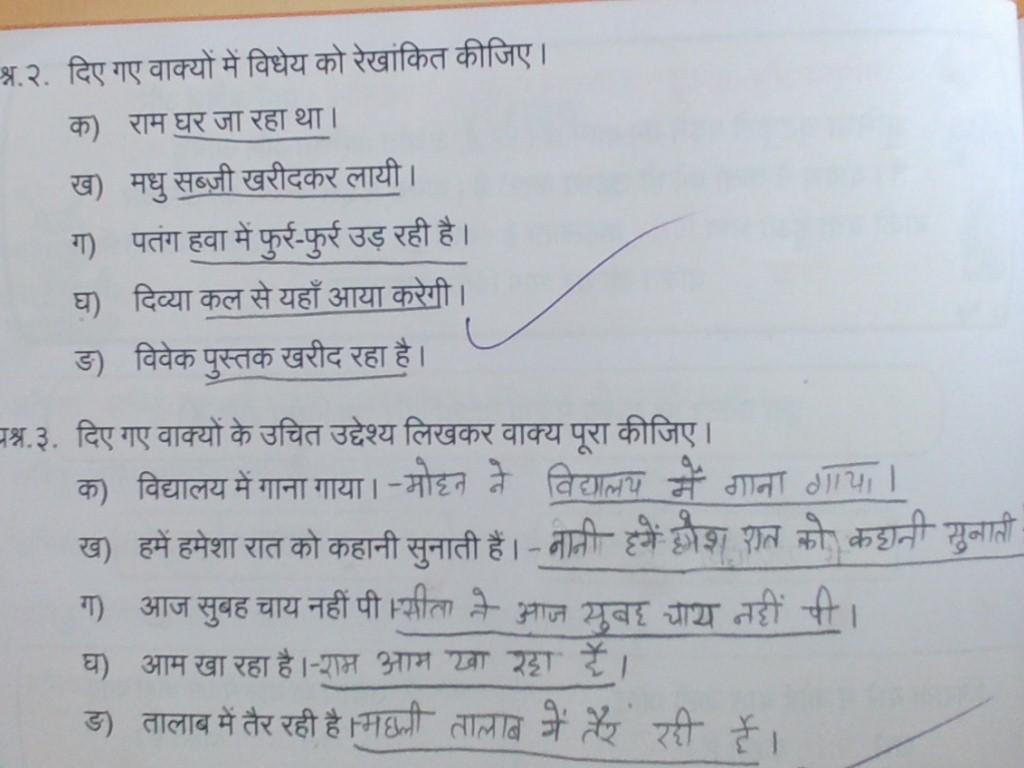 श्न.२. दिए गए वाक्यों में विधेय को रेखांकित कीजिए।
क) राम घर जा रहा था।
ख) मधु सब्ज़ी खरीदकर लायी।
ग) पतंग हवा में फुर्र-फुर्र उड़ रही है।
घ) दिव्या कल से यहाँ आया करेगी।
ङ) विवेक पुस्तक खरीद रहा है।
प्रश्न.३. दिए गए वाक्यों के उचित उद्देश्य लिखकर वाक्य पूरा कीजिए।
क) विद्यालय में गाना गाया। -मोहन ने विद्यालय में गाना गाया।
ख) हमें हमेशा रात को कहानी सुनाती हैं। - नानी हमें हमेशा रात को कहानी सुनाती
ग) आज सुबह चाय नहीं पी। -सीता ने आज सुबह चाय नहीं पी।
घ) आम खा रहा है। -राम आम खा रहा है।
ङ) तालाब में तैर रही है। -मछली तालाब में तैर रही है।